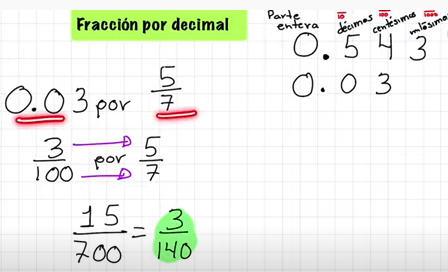 Fracción por decimal
0.03 por 5/7
3/100 por 5/7
15/700 = 3/140
Parte entera
10 décimas
100 centésimas
1000 milésimas
0.543
0.03